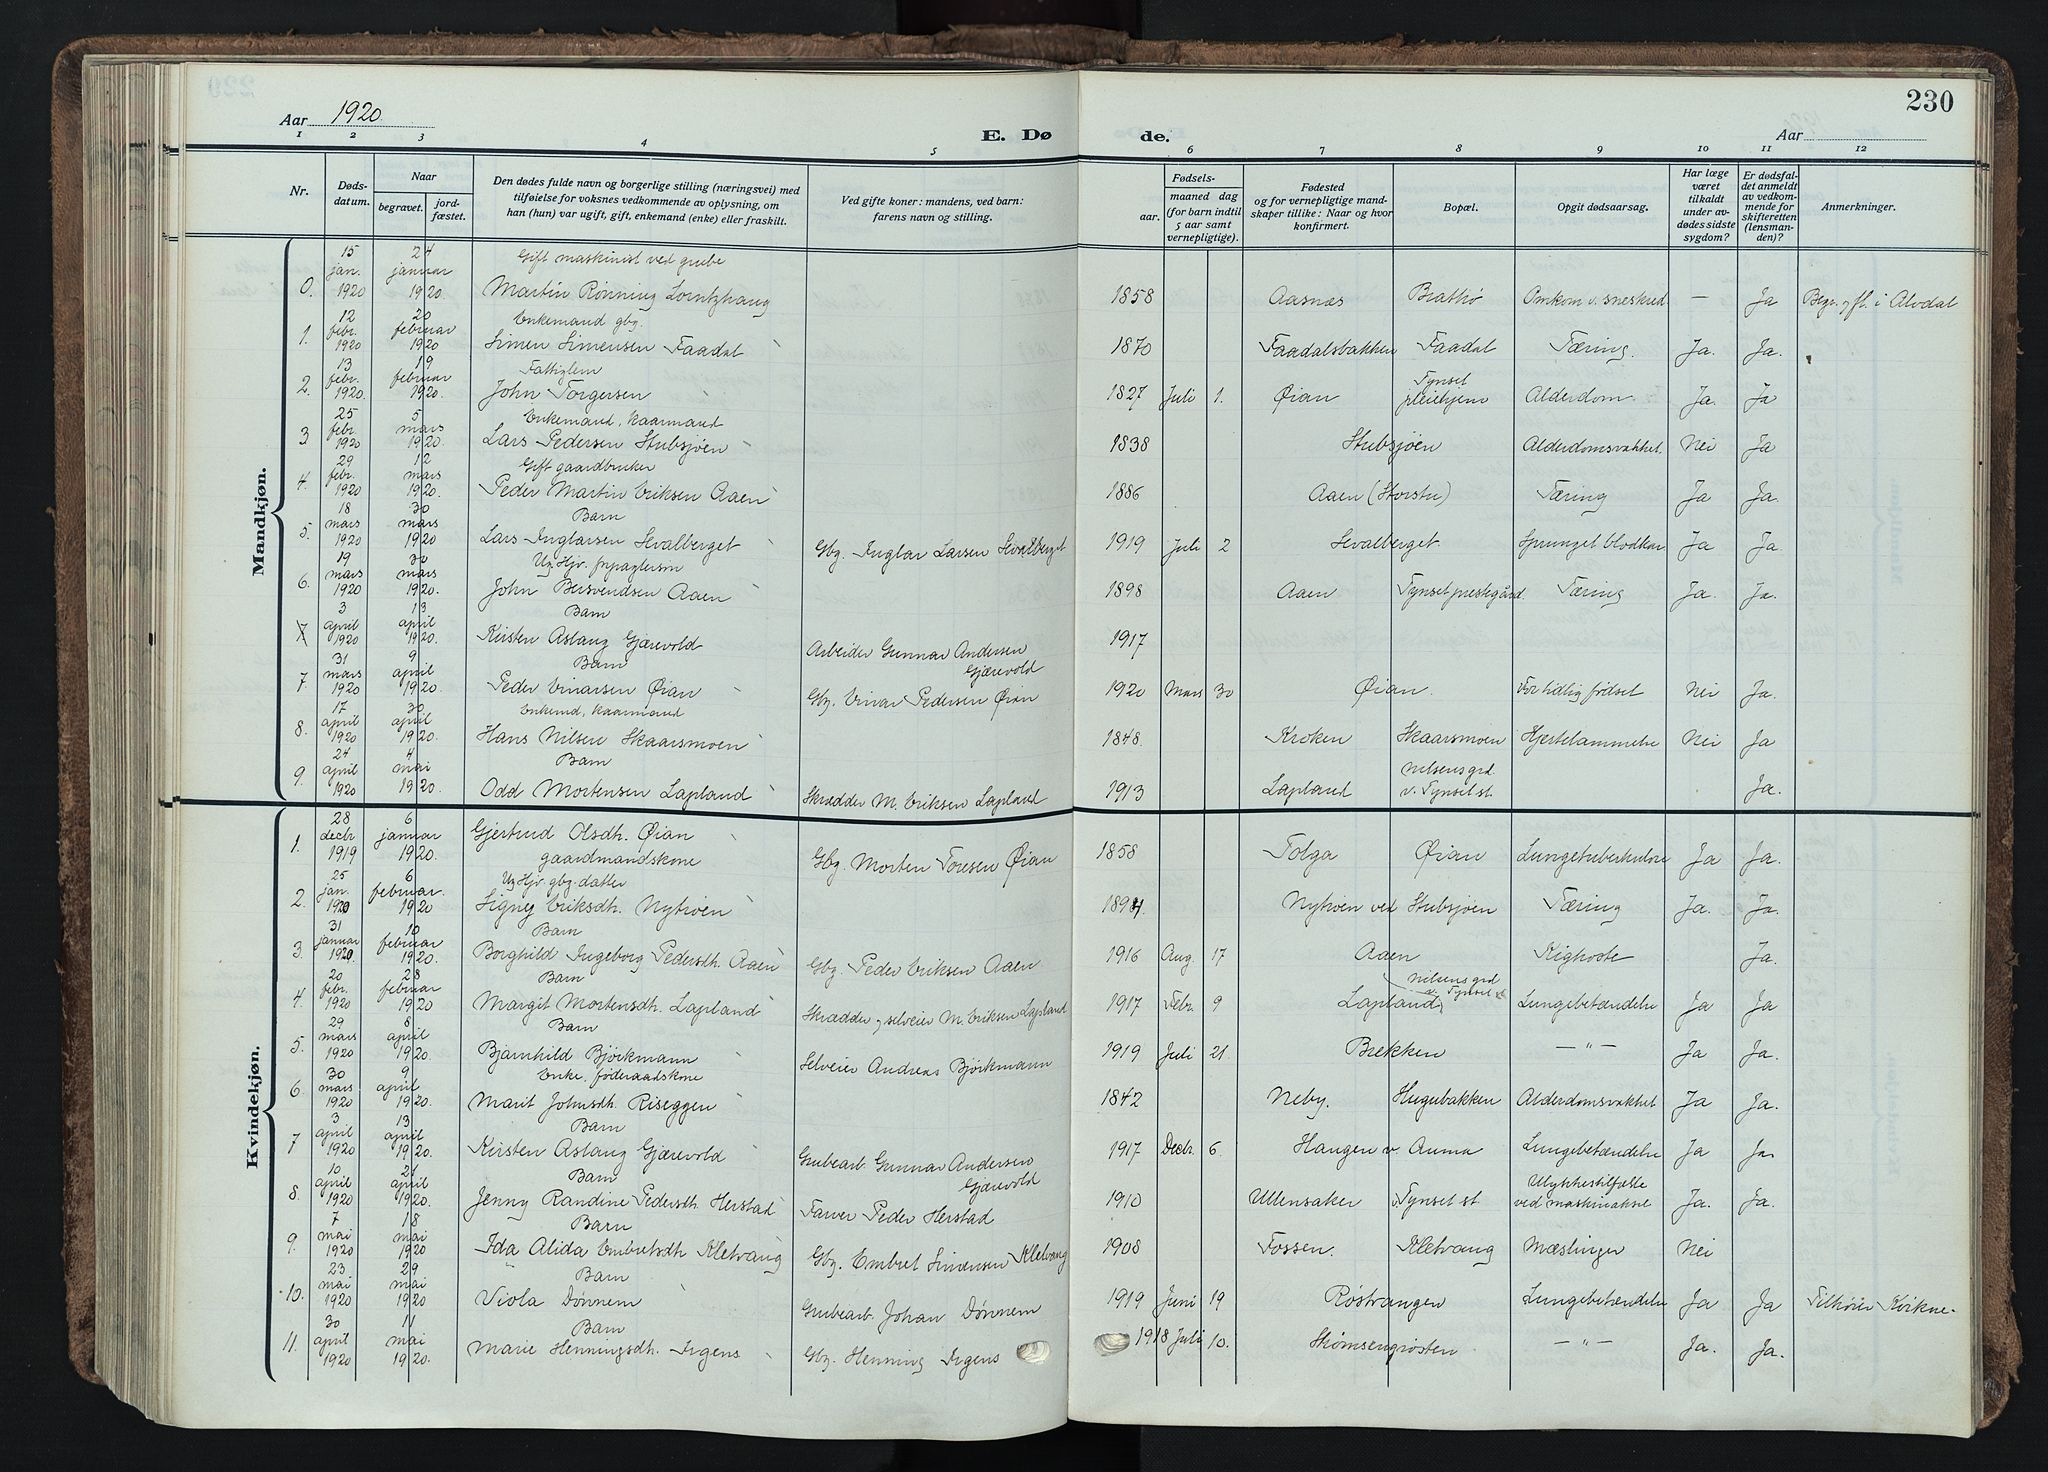 230
Aar 1920. E. Dø de. Aar
1 2 3 4 5 6 7 8 9 10 11 12
Nr. Dødsdatum. Naar begravet. jordfæstet. Den dødes fulde navn og borgerlige stilling (næringsvei) med tilføielse for voksnes vedkommende av oplysning, om han (hun) var ugift, gift, enkemand (enke) eller fraskilt. Ved gifte koner: mandens, ved barn: farens navn og stilling. Fødsels- aar. maaned dag (for barn indtil 5 aar samt vernepligtige). Fødested og for vernepligtige mandskaper tillike: Naar og hvor konfirmert. Bopæl. Opgit dødsaarsag. Har læge været tilkaldt under avdødes sidste sygdom? Er dødsfaldet anmeldt av vedkommende for skifteretten (lensmanden)? Anmerkninger.
Mandkjøn.
0. 15 jan. 1920 24 januar 1920. Gift maskinist ved grube Martin Rønning Lorntzhaug 1858 Aasnæs Brattø Omkom v. sneskred — Ja Begr. og fl. i Alvdal
1. 12 febr. 1920 20 februar 1920 Enkemand gbg. Simen Simensen Faadal 1870 Faadalsbakken Faadal Tæring. Ja. Ja.
2. 13 febr. 1920. 19 februar 1920. Fattiglem John Torgersen 1827 Juli 1. Øian Tynset pleiehjem Alderdom. Ja. Ja
3 25 febr. 1920 5 mars 1920. Enkemand, kaarmand Lars Pedersen Stubsjøen 1838 Stubsjøen Alderdomsvakhet. Nei Ja
4. 29 febr. 1920 12 mars 1920. Gift gaardbruker Peder Martin Eriksen Aaen 1886 Aaen (Storstu) Tæring Ja Ja.
5. 18 mars 1920 30 mars 1920 Barn Lars Inglarsen Sevalberget Gbg. Inglar Larsen Sevalberget 1919 Juli 2 Sevalberget. Sprunget blodkar Ja Ja.
6. 19 mars 1920 30 mars 1920. Ug. Hjv. John Bersvendsen Aaen 1898 Aaen Tynset prestegård. Tæring Ja. Ja.
7 3 april 1920 13 april 1920. Barn Kirsten Aslaug Gjærevold Arbeider Gunnar Andersen Gjærevold 1917
7. 31 mars 1920 9 april 1920. Barn Peder Einarsen Øian Gbg. Einar Pedersen Øian 1920 Mars 30 Øian. For tidlig fødsel Nei Ja.
8. 17 april 1920 30 april 1920. Enkemd, kaarmand Hans Nilsen Skaarsmoen 1848. Kroken Skaarsmoen Hjertelammelse Nei Ja
9. 24 april 1920 4 mai 1920. Barn Odd Mortensen Lapland Skrædder M. Eriksen Lapland 1913 Lapland Nilsens grd v. Tynset st. Ja.
Kvindekjøn.
1. 28 decbr 1919 6 januar 1920. Gjertrud Olsdh. Øian gaardmandskone Gbg. Morten Toresen Øian 1858 Tolga Øian Lungetuberkulose Ja Ja.
2. 25 jan. 1920 6 februar. 1920 Ug. Hjv. gbg. datter Signy Eriksdh. Nytrøen 1894. Nytrøen ved Stubsjøen Tæring Ja. Ja.
3. 31 januar 1920. 10 februar 1920. Barn Borghild Ingeborg Pedersdh. Aaen Gbg. Peder Eriksen Aaen 1916 Aug. 17 Aaen Kighoste Ja.
4. 20 febr. 1920 28 februar 1920 Barn Margit Mortensdh. Lapland Skrædder og selveier M. Eriksen Lapland 1917 Febr. 9 Lapland Nilsens grd Tynset Lungebetændelse Ja Ja
5. 29 mars 1920 8 april 1920. Barn Bjarnhild Bjørkmann Selveier Andreas Bjørkmann 1919 Juli 21. Brekken — " — Ja Ja.
6 30 mars 1920 9 april 1920. Enke, føderaadskone Marit Johnsdh. Riseggen 1842 Neby. Hugubakken Alderdomsvakhet Ja Ja.
7 3 april 1920 13 april 1920. Barn Kirsten Aslaug Gjærevold Grubearb. Gunnar Andersen Gjærevold 1917 Decbr. 6. Haugen v. Auma Lungebetændelse Ja Ja
8. 10 april 1920 21 april 1920. Barn Jenny Randine Pedersdh. Herstad Farver Peder Herstad 1910 Ullensaker v. Tynset st. Ulykkestilfælle ved maskinaksel Ja. Ja.
9. 7 mai 1920 18 mai 1920 Barn Ida Alida Embretsdh. Kletvang Gbg. Embret Simensen Kletvang 1908 Fossen. Kletvang Mæslinger Nei
10. 23 mai 1920 29 mai 1920 Barn Viola Dønnem Grubearb. Johan Dønnem 1919 Juni 19 Røstvangen Lungebetændelse Ja Ja Tilhører Kvikne.
11. 30 april 1920 11 mai 1920. Barn Marie Henningsdh. Irgens Gbg. Henning Irgens 1918 Juli 10. Skømsengrosten — " — Ja. Ja.